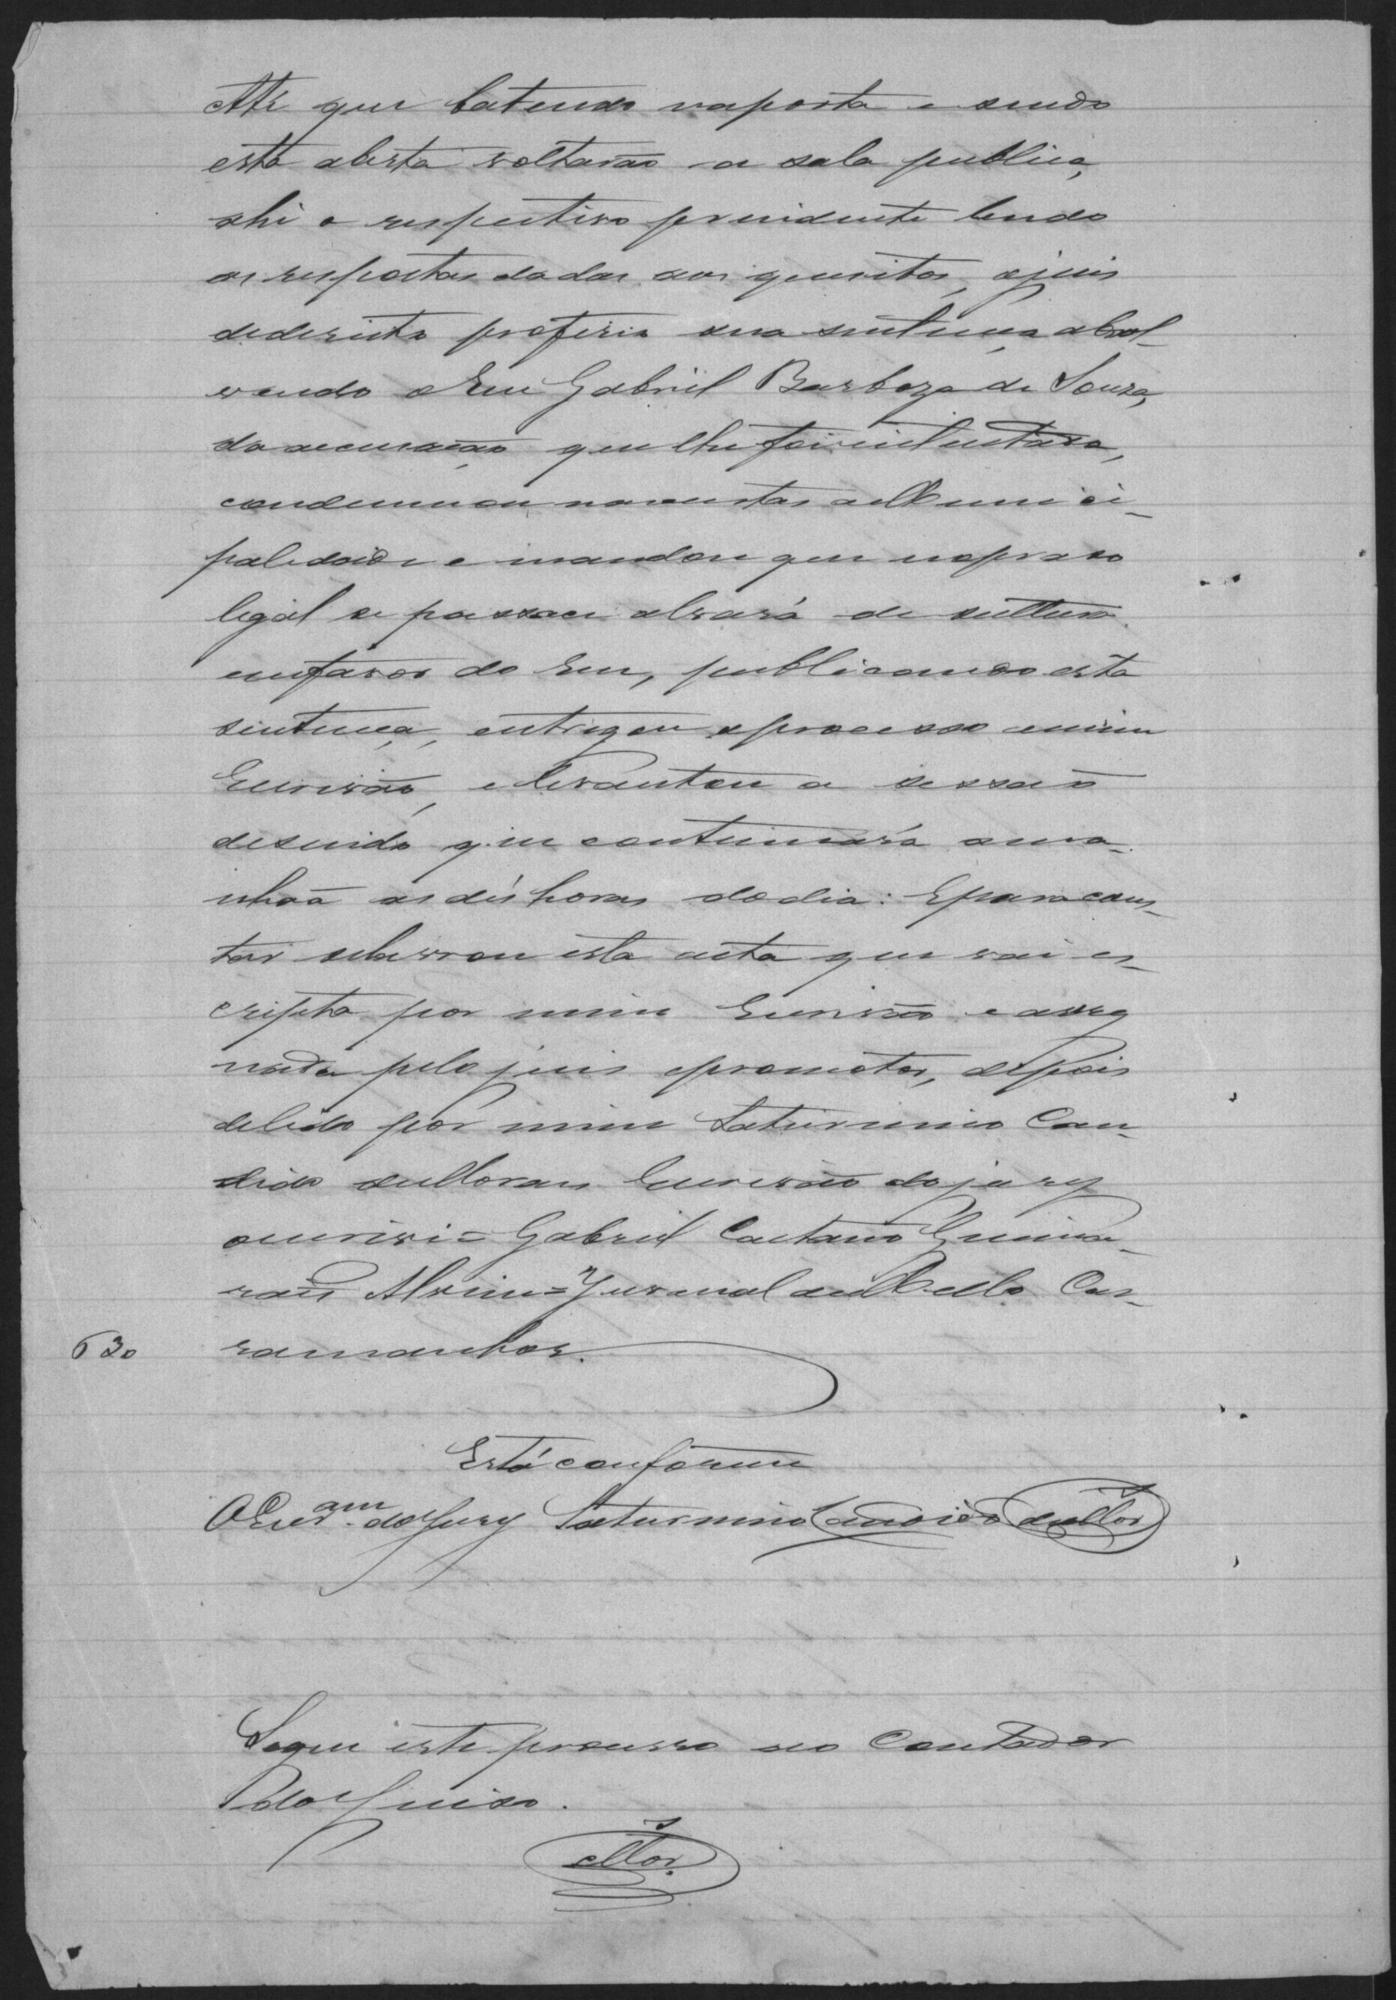 Até que batendo na porta e sendo
esta aberta voltarão a sala publica,
ahi o respectivo presidente lendo
as respostas dadas aos quesitos, o juis
de direito proferio sua sentença absol-
vendo o Reu Gabriel Barboza de Souza,
da accusação que lhe foi intentada,
condemnou nas custas a Munici-
palidade e mandou que no praso
legal se passace alvará de soltura
em favor do Reu, publicando esta
sentença, entregou o processo a mim
Escrivão, e levantou a sessão
deste dia que continuará ama-
nhaã as dés horas do dia: E para cons-
tar lavrou esta acta que vai es-
cripta por mim Escrivão e assig
nada pelo juis e promotor, depois
de lida por mim Saturnino Can-
dido de Moraes Escrivão do jury
o escrivi = Gabriel Caetano Guima-
raẽs Alvim = Juvenal de Mello Car-
ramanhos.
630
Está conforme
O Escr.am do Jury Saturnino Candido de Mor.s
Segue este processo ao Contador
do Juizo.
Mor.s